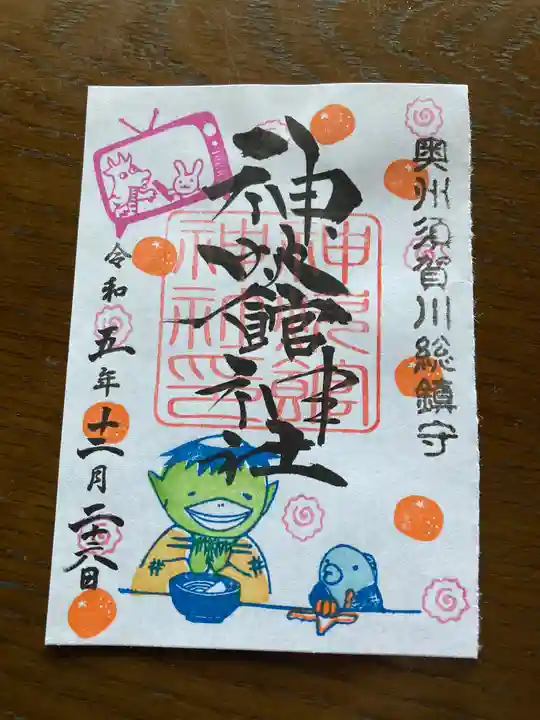 奥州須賀川総鎮守
神炊館神社
神炊館
神社印
令和五年十二月二十八日